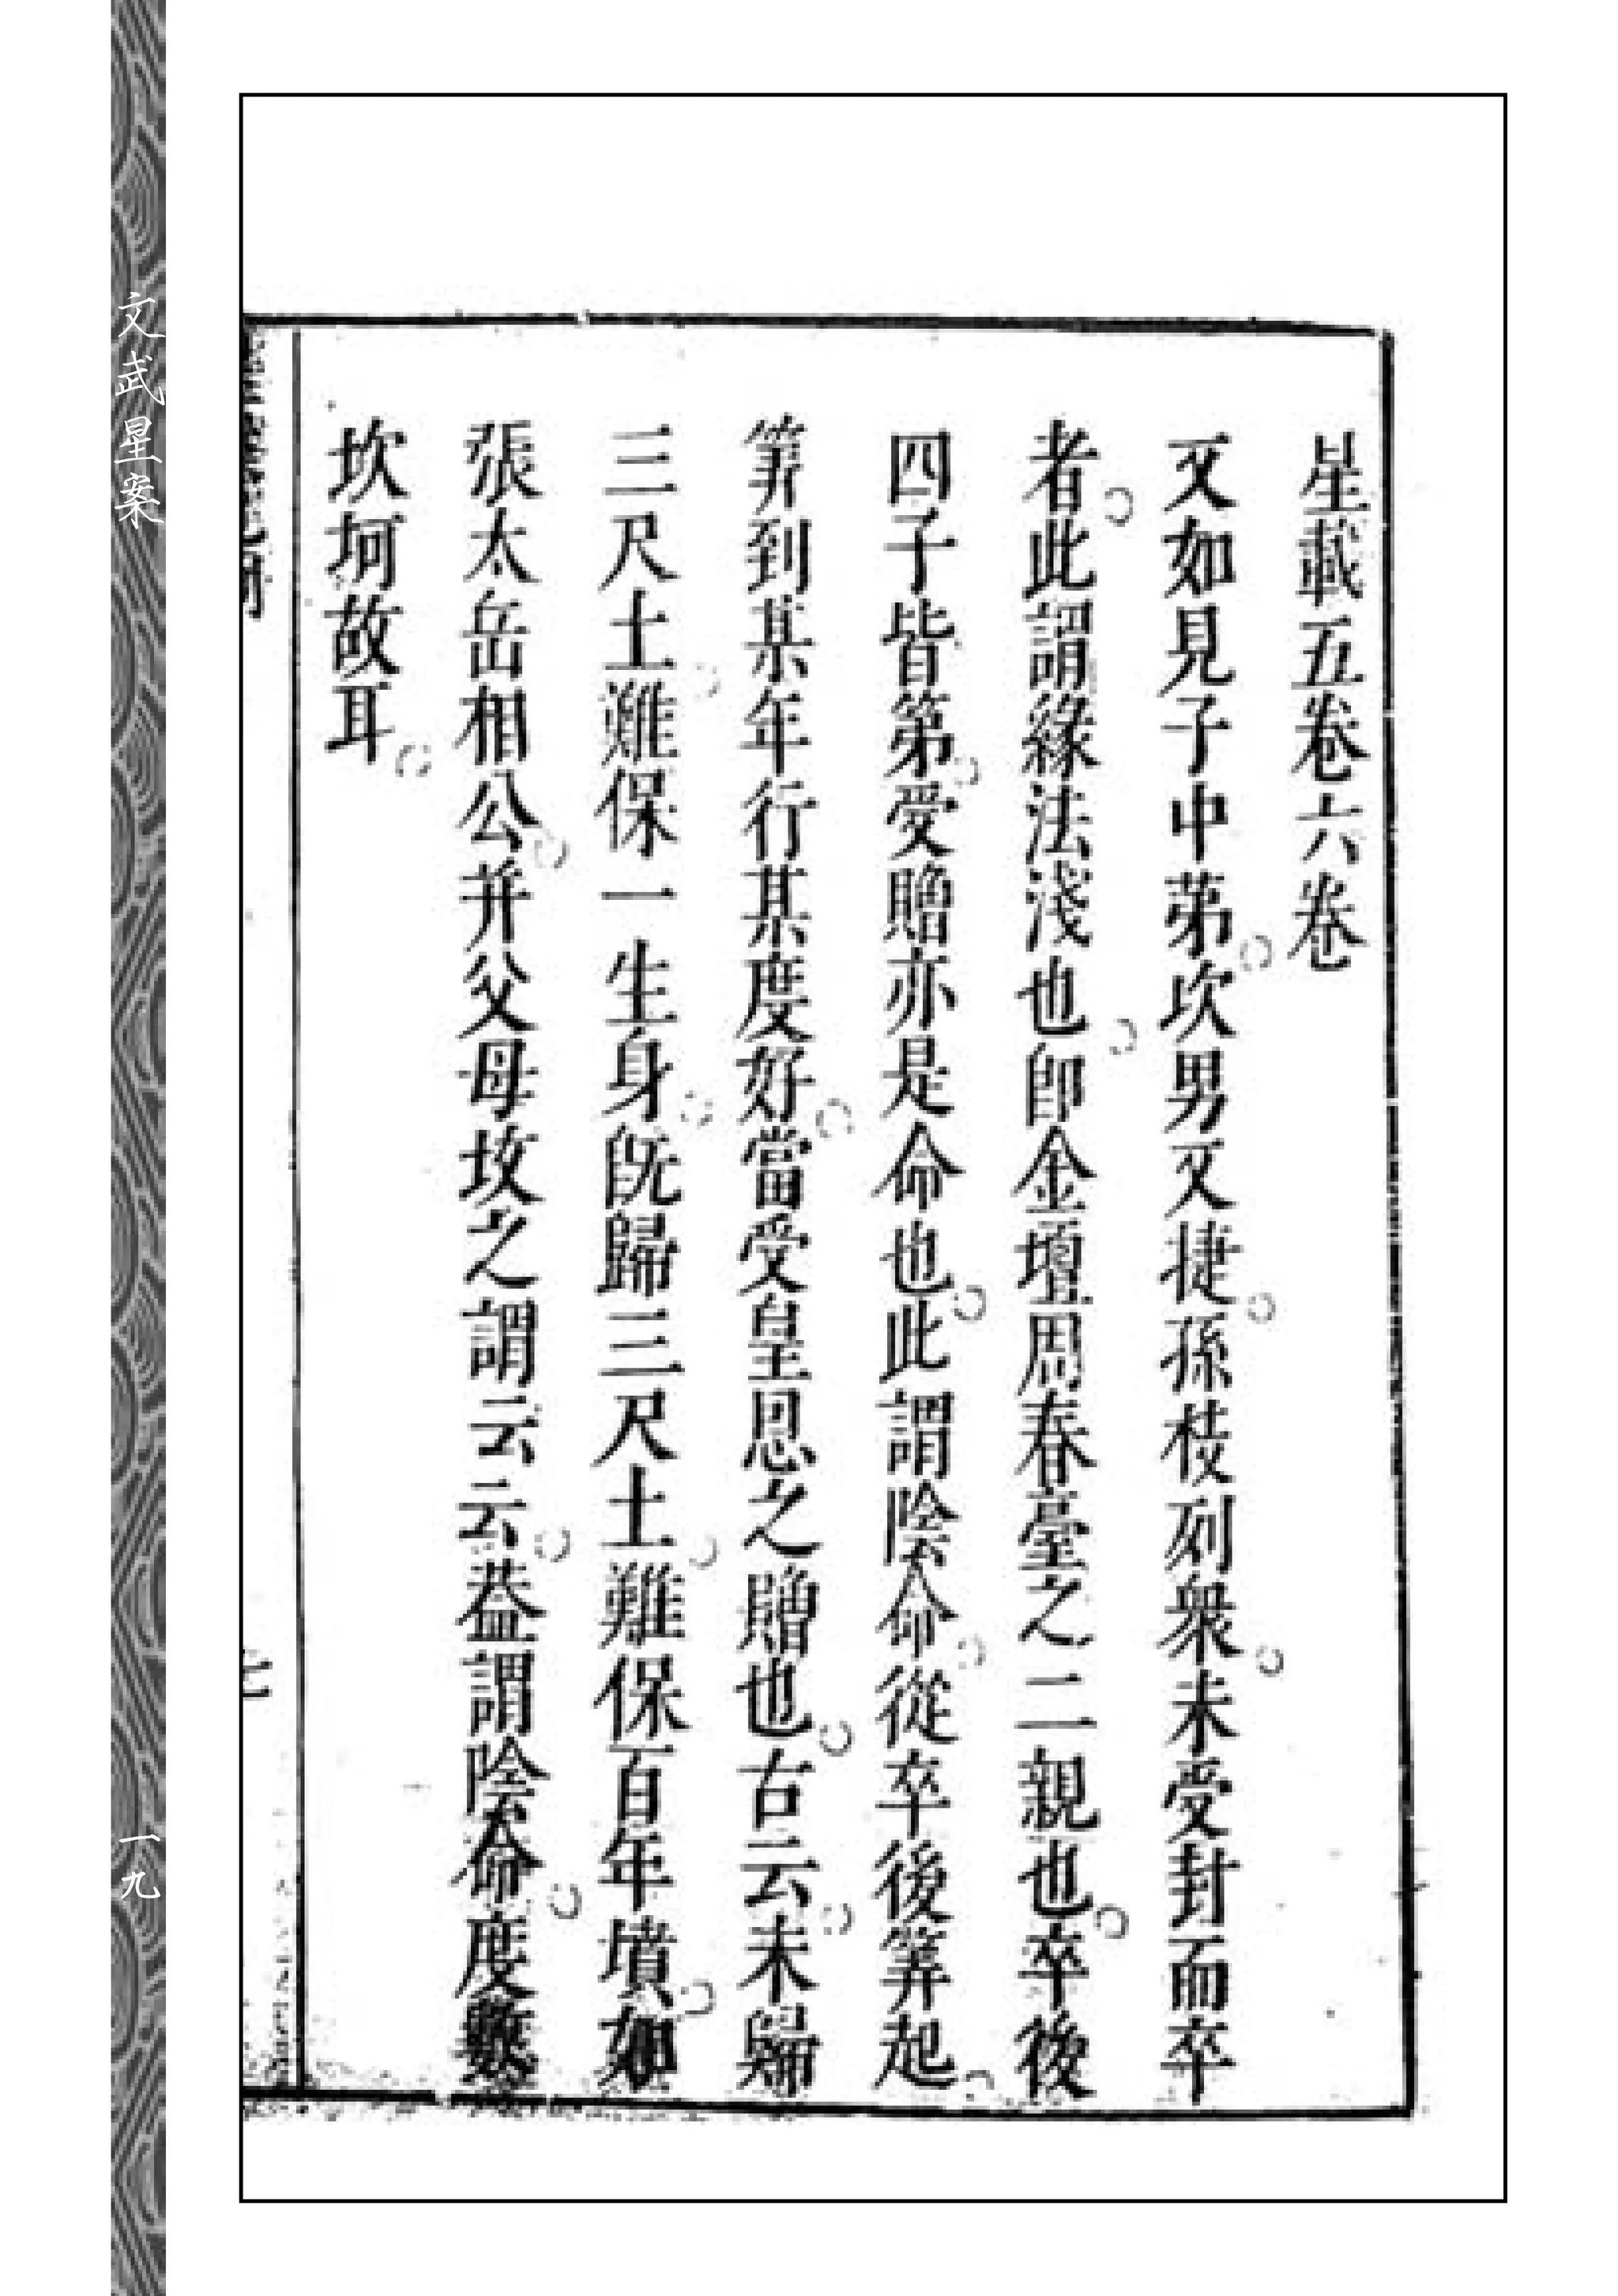 星載五卷六卷
又如見子中苐次男又捷孫枝列衆未受封而卒
者此謂緣法淺也卽金壇周春臺之二親也卒後
四子皆第受贈亦是命也此謂陰命從卒後筭起
筭到某年行某度好當受皇恩之贈也古云未歸
三尺土難保一生身旣歸三尺土難保百年墳如
張太岳相公并父母坟之謂云云葢謂陰命度數
坎坷故耳
七
文武星案
一九